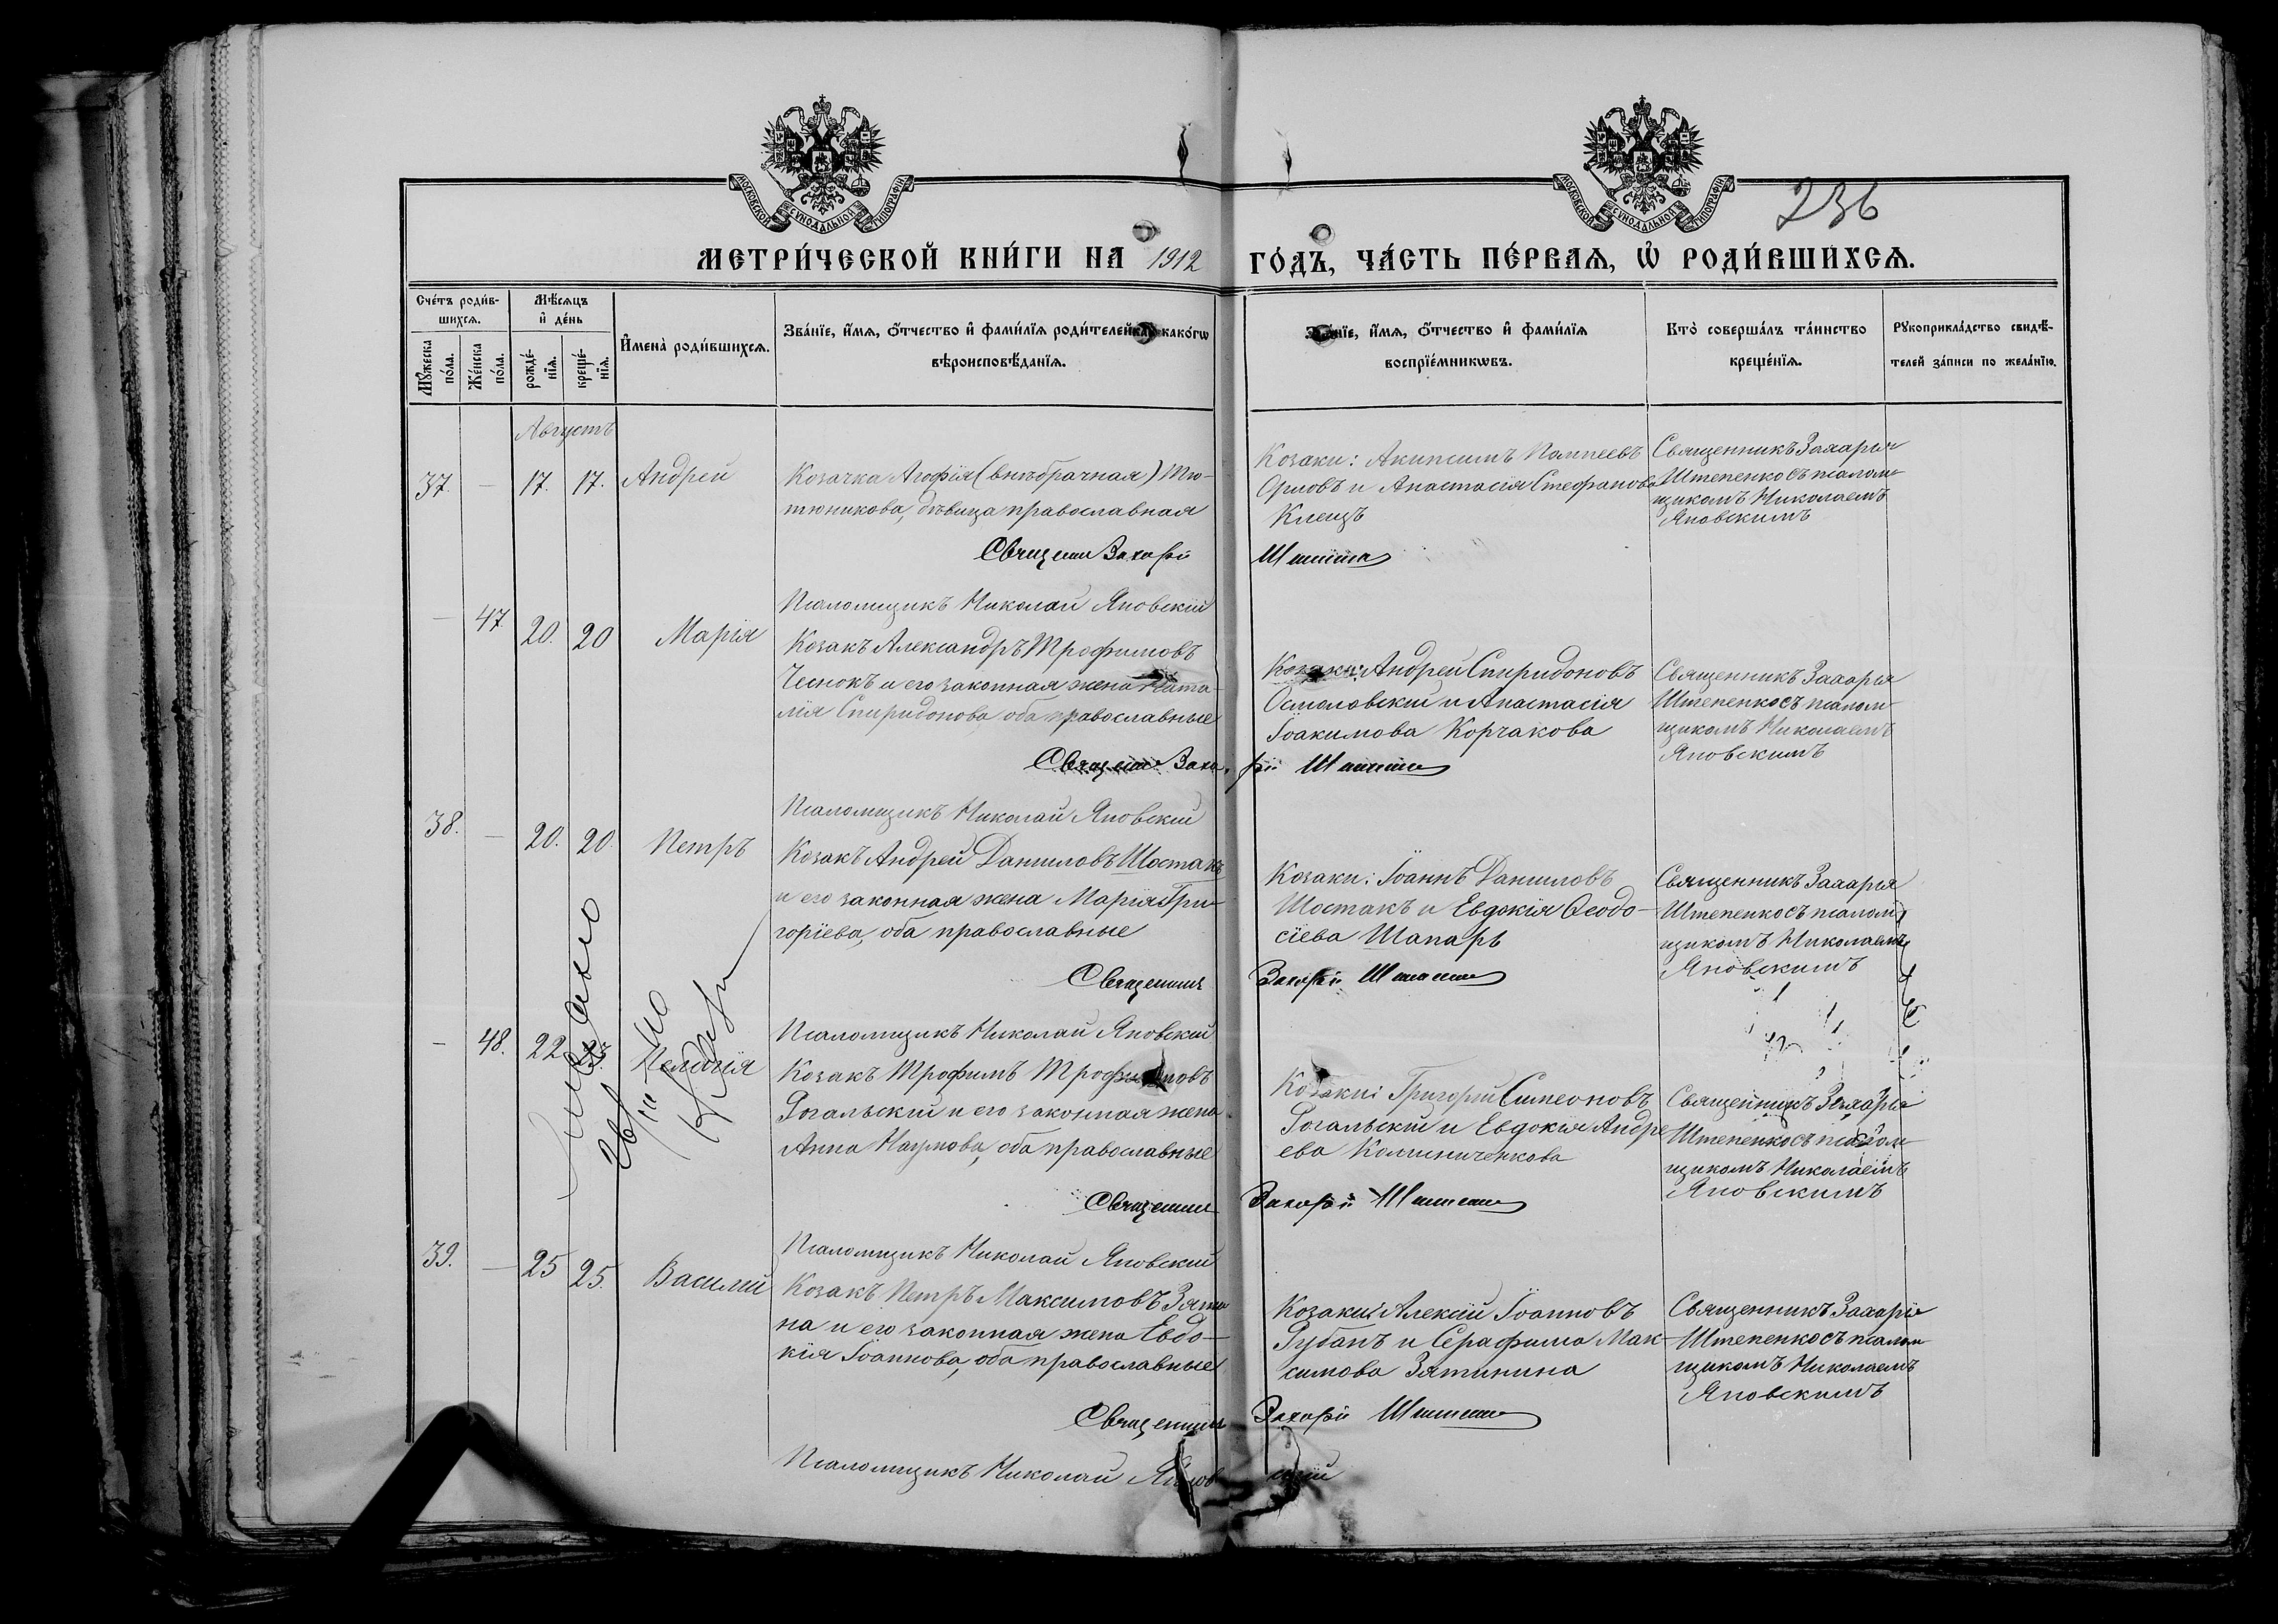 МОСКОВСКОЙ СѴНОДАЛЬНОЙ ТИПОГРАФІИ
МОСКОВСКОЙ СѴНОДАЛЬНОЙ ТИПОГРАФІИ
236
МЕТРИ́ЧЕСКОЙ КНИ́ГИ НА 1912 ГО́ДЪ, ЧА́СТЬ ПЕ́РВАѦ, Ѡ҆ РОДИ́ВШИХСѦ.
Сче́тъ роди́в-
шихсѧ.
Мꙋ́жеска по́ла.
Же́нска по́ла.
Мѣ́сѧцъ
и҆ де́нь
рожде́-
нїѧ.
креще́-
нїѧ.
И҆мена̀ роди́вшихсѧ.
Зва́нїе, и҆́мѧ, ѻ҆́тчество и҆ фами́лїѧ роди́телей како́гѡ
вѣроисповѣ́данїѧ.
Зва́нїе, и҆́мѧ, ѻ҆́тчество и҆ фами́лїѧ
воспрїе́мникѡвъ.
Кто̀ соверша́лъ та́инство
креще́нїѧ.
Рꙋкоприкла́дство свидѣ́-
телей за́писи по жела́нїю.
Августъ
37. — 17. 17. Андрей
Козачка Агафія (внѣбрачная) Тю-
тюникова, дѣвица православная
Козаки: Акиндимъ Помпеевъ
Орловъ и Анастасія Стефанова
Клецъ
Священникъ Захарія
Штепенко съ псалом-
щикомъ Николаемъ
Яновскимъ
Священ Захарій
Псаломщикъ Николай Яновскій
— 47 20. 20 Марія
Козакъ Александръ Трофимовъ
Чеснокъ и его законная жена Ната-
лія Спиридонова, оба православные
Козаки: Андрей Спиридоновъ
Осмоловскій и Анастасія
Іоакимова Корчакова
Священникъ Захарія
Штепенко съ псалом-
щикомъ Николаемъ
Яновскимъ
Священ Захарій
Псаломщикъ Николай Яновскій
38. — 20. 20. Петръ
Козакъ Андрей Даниловъ Шостакъ
и его законная жена Марія Гри-
горіева, оба православные
Козаки: Іоаннъ Даниловъ
Шостакъ и Евдокія Ѳеодо-
сіева Шапарь
Священникъ Захарія
Штепенко съ псалом-
щикомъ Николаемъ
Яновскимъ
Священникъ Захарій
Псаломщикъ Николай Яновскій
— 48. 22
Козакъ Трофимъ Трофимовъ
Рогальскій и его законная жена
Анна Наумова, оба православные
Козаки: Григорій Симеоновъ
Рогальскій и Евдокія Андре
ева Колиниченкова
Священникъ Захарія
Штепенко съ псалом-
щикомъ Николаемъ
Яновскимъ
Священник Захарій
Псаломщикъ Николай Яновскій
39. — 25 25. Василій
Козакъ Петръ Максимовъ Зяти
на и его законная жена Евдо-
кія Іоаннова, оба православные
Козаки: Алексій Іоанновъ
Рубанъ и Серафима Мак-
симова Зятинина
Священникъ Захарія
Штепенко съ псалом
щикомъ Николаемъ
Яновскимъ
Священник Захарій
Псаломщикъ Николай Яновскій